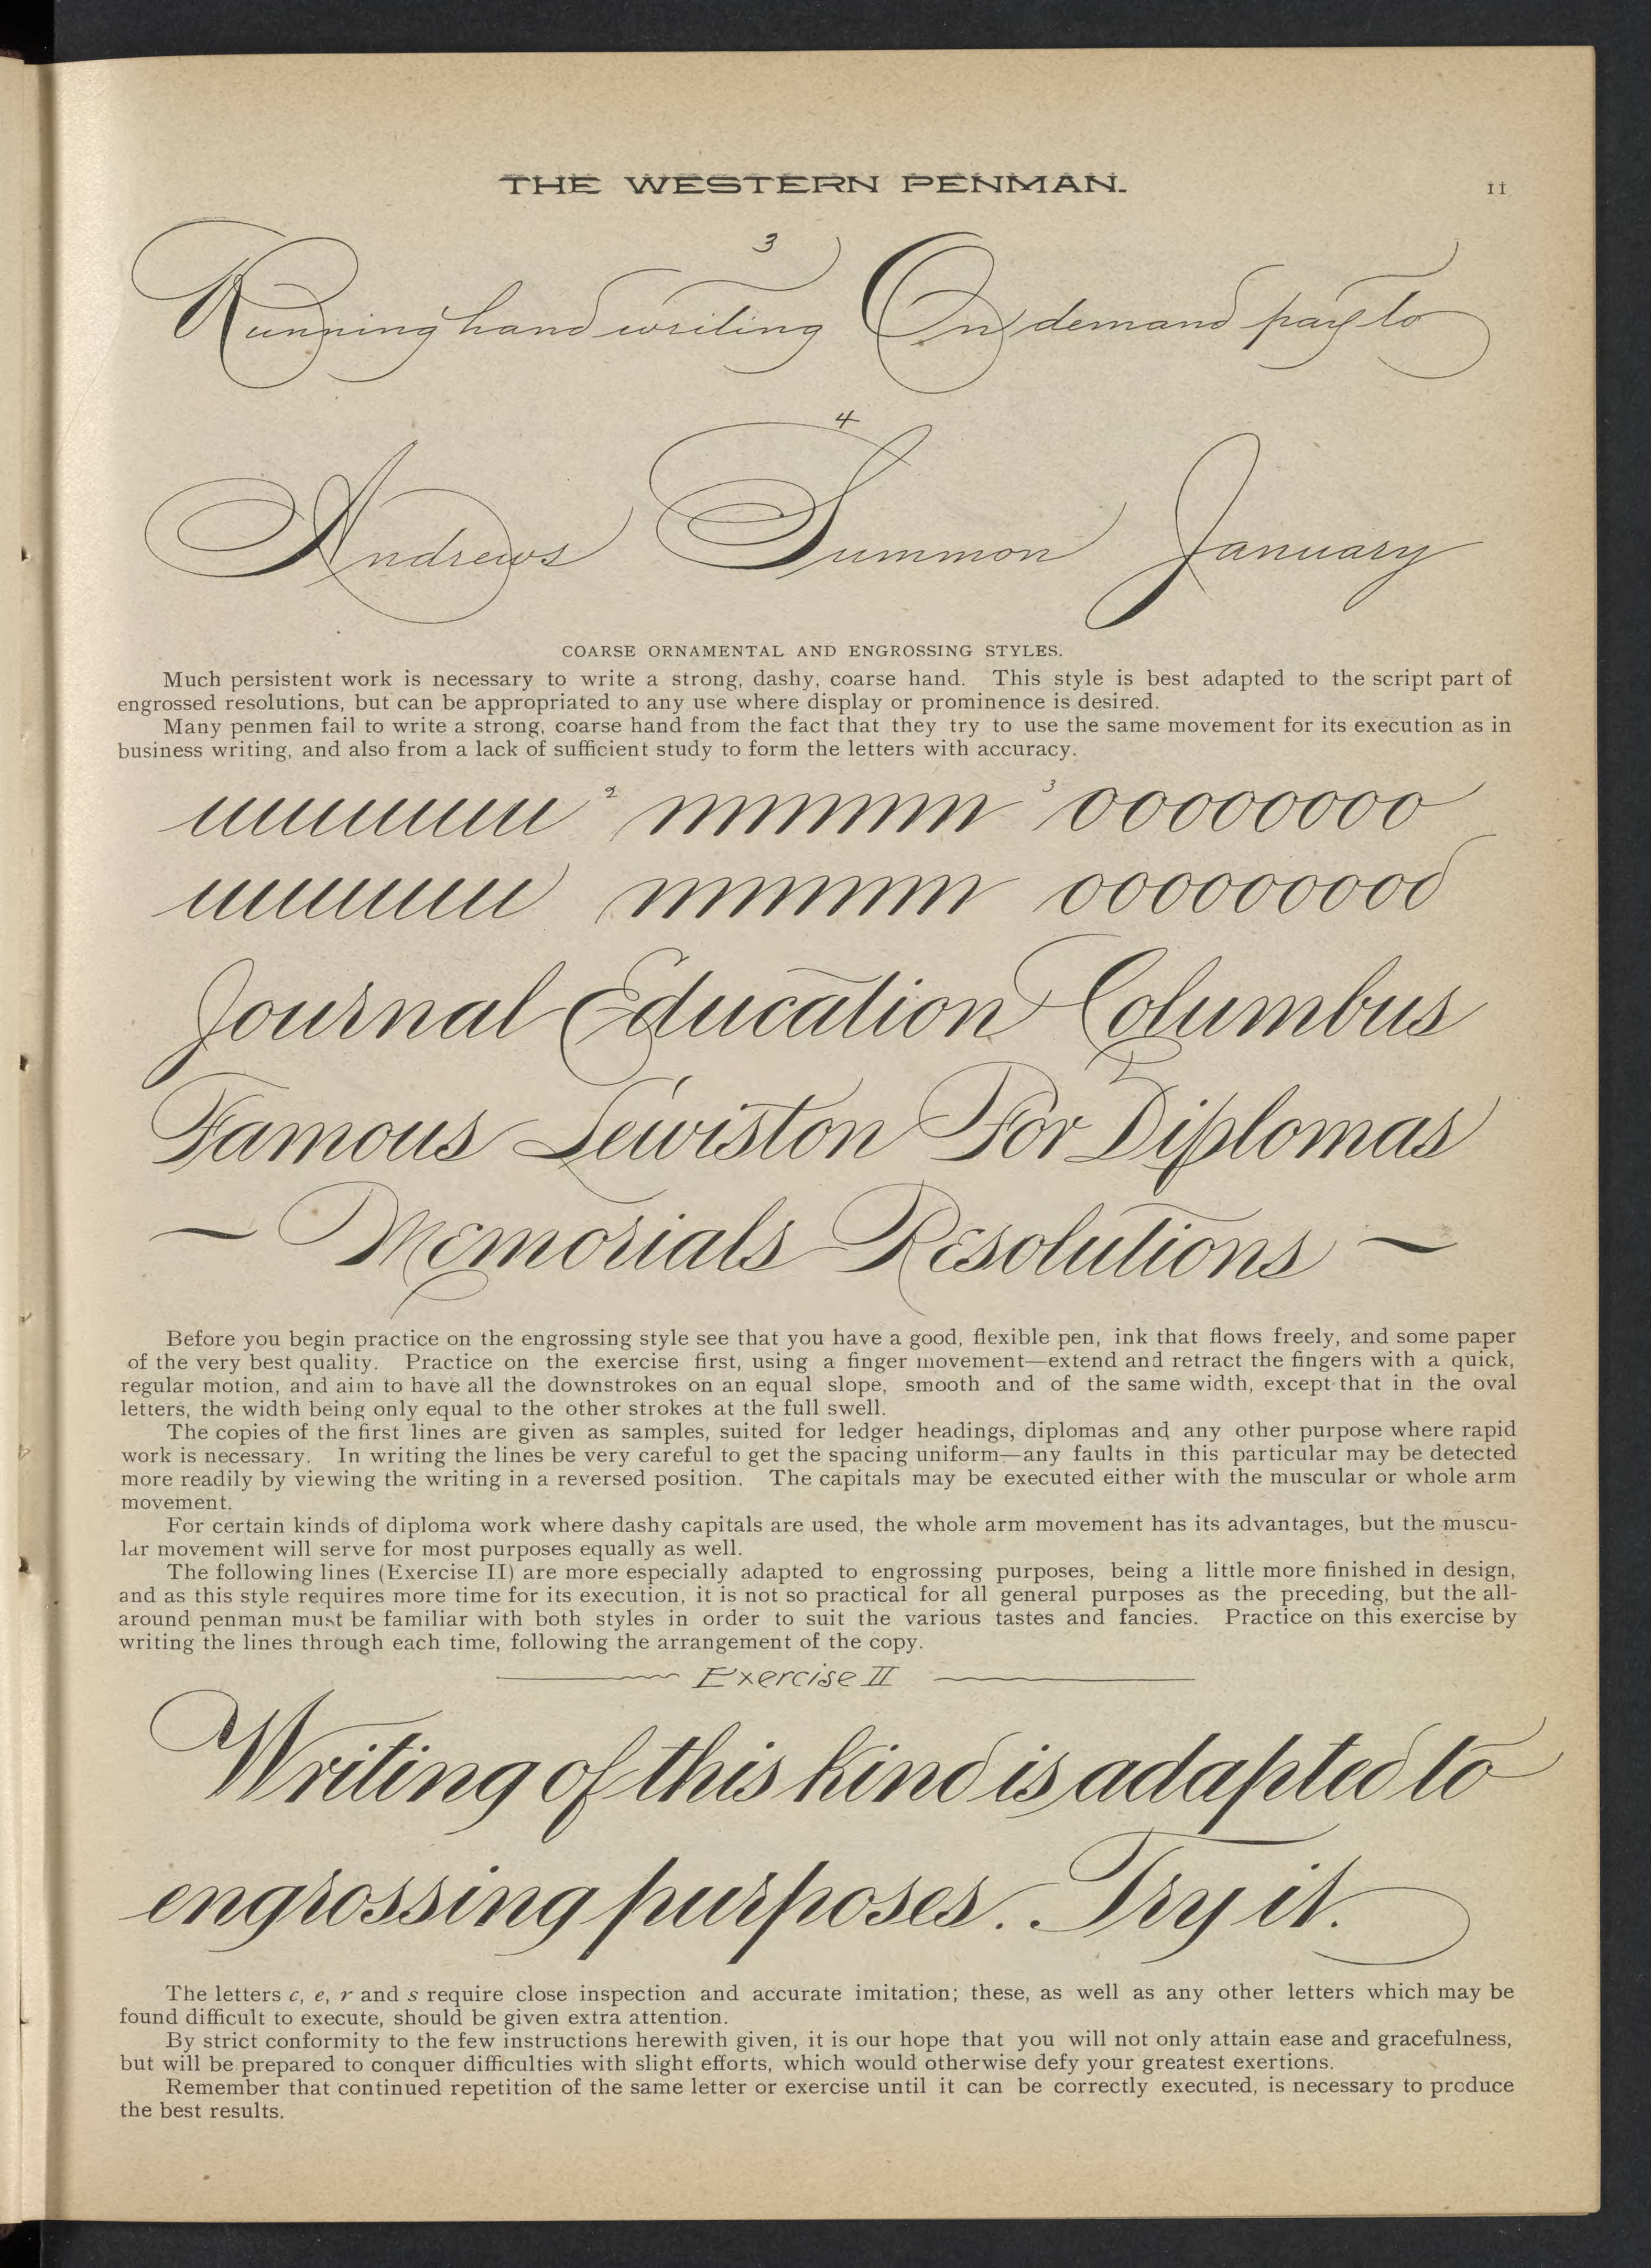 THE WESTERN PENMAN. 11
3
Running hand writing On demand pay to
4
Andrews Summon January
COARSE ORNAMENTAL AND ENGROSSING STYLES.
Much persistent work is necessary to write a strong, dashy, coarse hand. This style is best adapted to the script part of
engrossed resolutions, but can be appropriated to any use where display or prominence is desired.
Many penmen fail to write a strong, coarse hand from the fact that they try to use the same movement for its execution as in
business writing, and also from a lack of sufficient study to form the letters with accuracy.
uuuuuuu 2 mmmmm 3 oooooooo
uuuuuuu mmmmm oooooooood
Journal Education Columbus
Famous Lewiston For Diplomas
~ Memorials Resolutions ~
Before you begin practice on the engrossing style see that you have a good, flexible pen, ink that flows freely, and some paper
of the very best quality. Practice on the exercise first, using a finger movement—extend and retract the fingers with a quick,
regular motion, and aim to have all the downstrokes on an equal slope, smooth and of the same width, except that in the oval
letters, the width being only equal to the other strokes at the full swell.
The copies of the first lines are given as samples, suited for ledger headings, diplomas and any other purpose where rapid
work is necessary. In writing the lines be very careful to get the spacing uniform—any faults in this particular may be detected
more readily by viewing the writing in a reversed position. The capitals may be executed either with the muscular or whole arm
movement.
For certain kinds of diploma work where dashy capitals are used, the whole arm movement has its advantages, but the muscu-
lar movement will serve for most purposes equally as well.
The following lines (Exercise II) are more especially adapted to engrossing purposes, being a little more finished in design,
and as this style requires more time for its execution, it is not so practical for all general purposes as the preceding, but the all-
around penman must be familiar with both styles in order to suit the various tastes and fancies. Practice on this exercise by
writing the lines through each time, following the arrangement of the copy.
Exercise II
Writing of this kind is adapted to
engrossing purposes. Try it.
The letters c, e, r and s require close inspection and accurate imitation; these, as well as any other letters which may be
found difficult to execute, should be given extra attention.
By strict conformity to the few instructions herewith given, it is our hope that you will not only attain ease and gracefulness,
but will be prepared to conquer difficulties with slight efforts, which would otherwise defy your greatest exertions.
Remember that continued repetition of the same letter or exercise until it can be correctly executed, is necessary to produce
the best results.